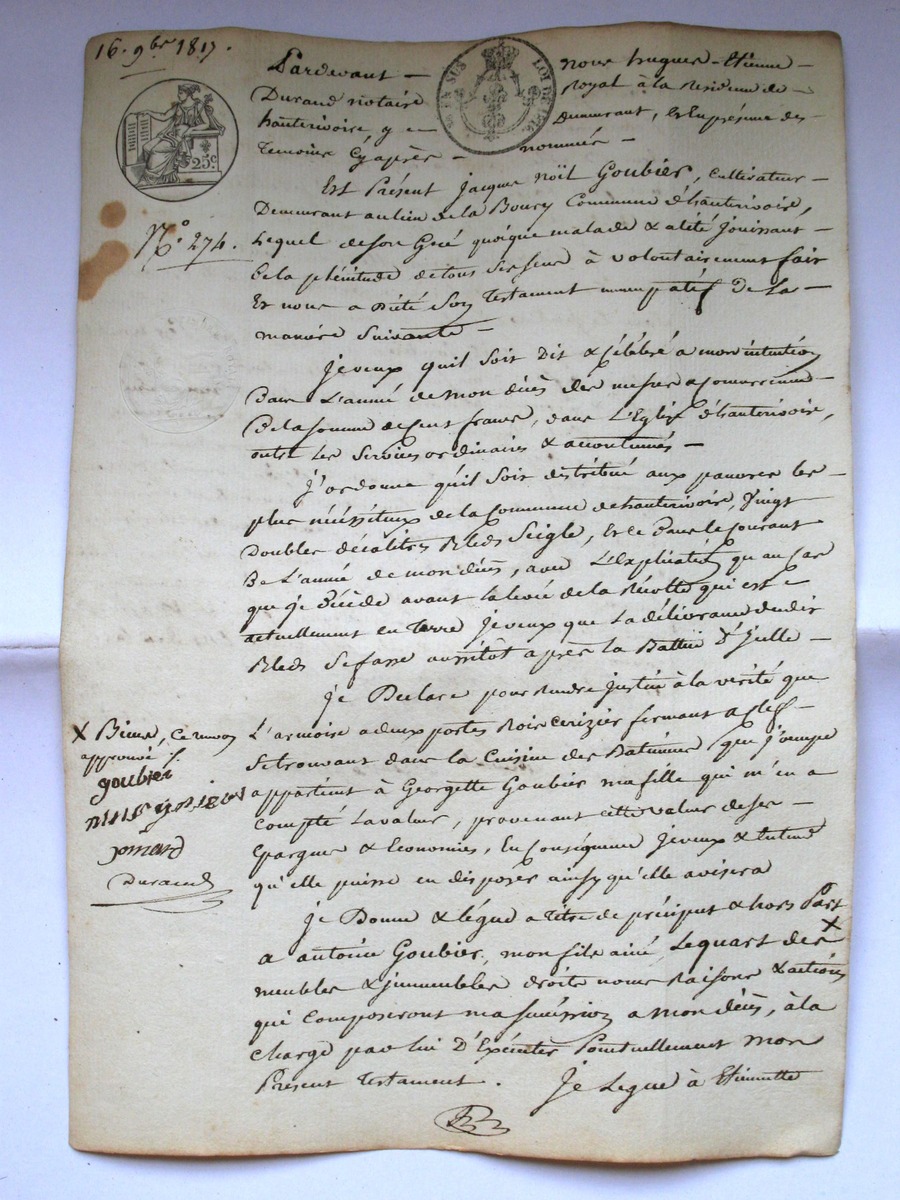 16. 9bre 1817.
Pardevant — nous hugues - Etienne -
Durand notaire Royal à la Residence de -
hauterivoire, y Demeurant, et en présence des
Temoins cyaprès - nommés -
25c
No 274.
Est Présent Jacques Noël Goubier, cultivateur -
Demeurant au lieu de la Boury Commune d'hauterivoire,
Lequel de son Gré quoique malade & alité Jouissant -
De la plénitude de tous ses sens à volontairement fait
Et nous a Dicté Son Testament nuncupatif De La -
maniere Suivante -
Je veux quil Soit Dit & Célébré a mon intention
Dans L'année de mon décès des messes a concurrence -
De la somme de Cent francs, dans L'Eglise d'hauterivoire,
outre Les Services ordinaires & accoutumés -
J'ordonne quil soit distribué aux pauvres les -
plus nécéssiteux de la Commune de hauterivoire, Vingt
Doubles décalitres Bleds Seigle, et ce Dans le Courant
De L'année de mon décès, avec L'Explication qu'au Cas
que Je Décéde avant la levée de la Récolte qui est
actuellement en Terre Je veux que La délivrance dudit
Bled Se fasse aussitôt après la Battue D'Icelle -
Je Declare pour Rendre Justice à la vérité que
L'armoire a deux portes Bois Cerizier fermant a clef -
Se trouvant dans la Cuisine des Batimens que J'occupe
appartient à Georgette Goubier ma fille qui m'en a
Compté La valeur, provenant cette valeur de ses -
Epargnes & Economies, En Conséquence Je veux & Entend
qu'elle puisse en disposer ainsy qu'elle avisera
X Biens, ce renvoy
approuvé
goubier
jomard
Durand
Je Donne & légue a titre de préciput & hors Part
a antoine Goubier, mon fils ainé, Le quart des X
meubles & immeubles droits noms Raisons & actions
qui Composeront ma succéssion a mon décès, à la
charge par lui D'Exécuter Ponctuellement mon
Présent Testament. Je Legue à Etiennette